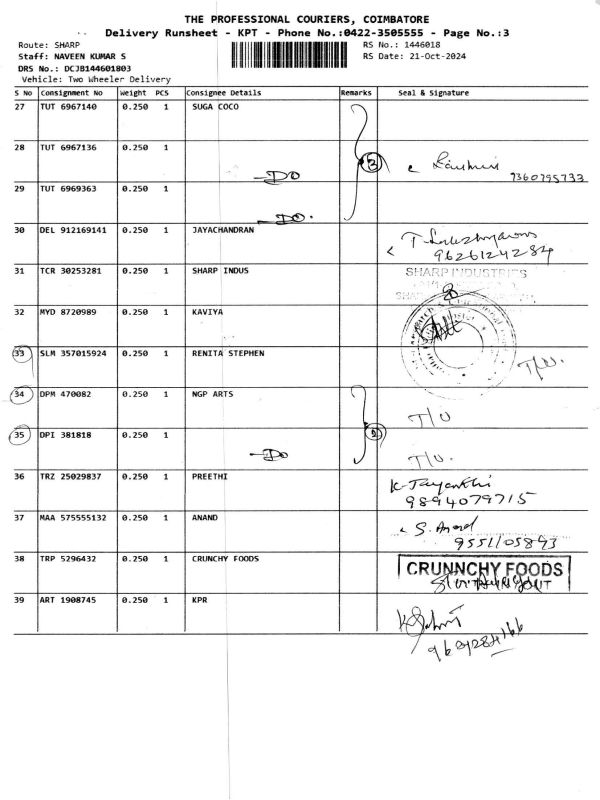 THE PROFESSIONAL COURIERS, COIMBATORE
Delivery Runsheet - KPT - Phone No.:0422-3505555 - Page No.:3
Route: SHARP
RS No.: 1446018
Staff: NAVEEN KUMAR S
RS Date: 21-Oct-2024
DRS No.: DCJB144601803
Vehicle: Two Wheeler Delivery
S No Consignment No Weight PCS Consignee Details Remarks Seal & Signature
27 TUT 6967140 0.250 1 SUGA COCO
28 TUT 6967136 0.250 1
-DO 3
9360795733
29 TUT 6969363 0.250 1
-DO.
30 DEL 912169141 0.250 1 JAYACHANDRAN
9626124284
31 TCR 30253281 0.250 1 SHARP INDUS SHARP INDUSTRIES
32 MYD 8720989 0.250 1 KAVIYA
33 SLM 357015924 0.250 1 RENITA STEPHEN
T/U.
34 DPM 470082 0.250 1 NGP ARTS
T/U
35 DPI 381818 0.250 1 2
-DO T/U.
36 TRZ 25029837 0.250 1 PREETHI
K-Jayanthi
9894079715
37 MAA 575555132 0.250 1 ANAND
S. Anand
9551105893
38 TRP 5296432 0.250 1 CRUNCHY FOODS
CRUNNCHY FOODS
39 ART 1908745 0.250 1 KPR